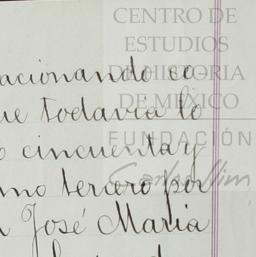 CENTRO DE
ESTUDIOS
DE HISTORIA
DE MÉXICO
FUNDACIÓN
Carlos Slim
acionando co
ue todavia le
o cincuenta y
mo tercero por
José Maria